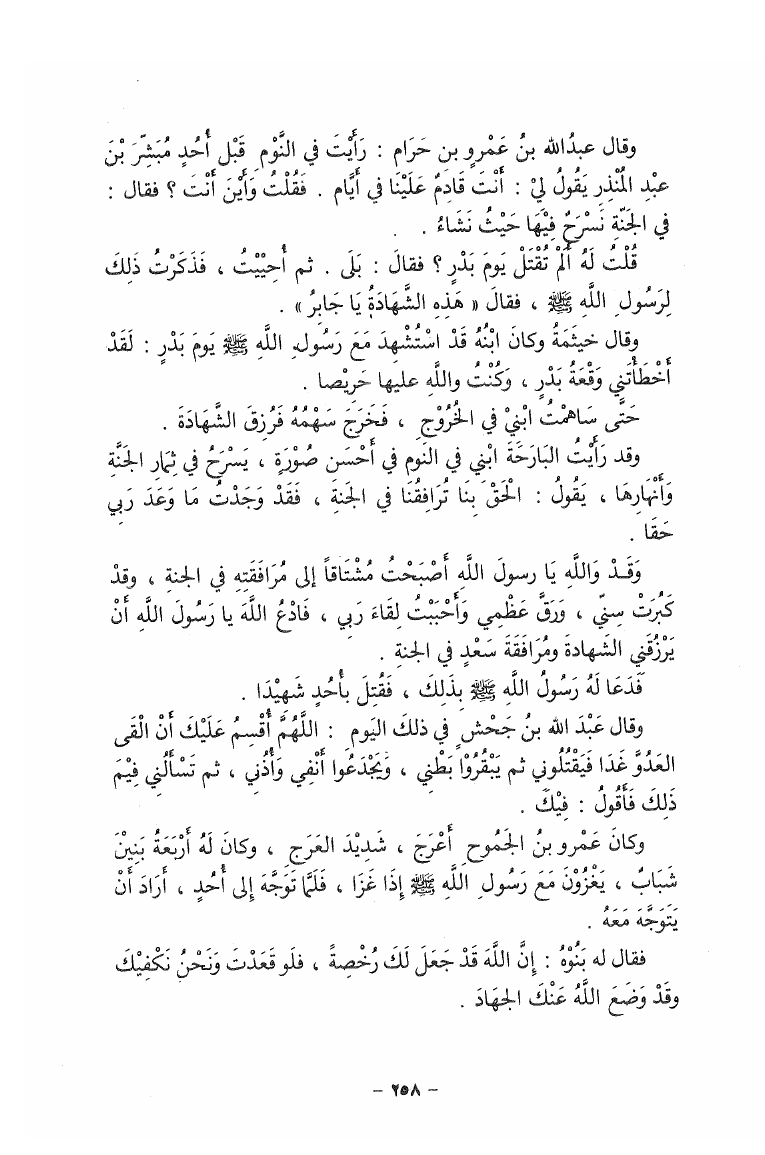 وقال عبدُالله بنُ عَمْروٍ بن حَرَام : رَأَيْتُ في النَّوْمِ قَبْل أُحُدٍ مُبَشِّرَ بْنَ
عبْدِ المُنْذِر يَقُولُ لِيْ : أَنْتَ قَادِمٌ عَلَيْنَا في أَيَّام . فَقُلْتُ وَأَيْنَ أَنْتَ ؟ فقال :
في الجَنّةِ نَسْرَحُ فِيْهَا حَيْثُ نَشَاءُ .
قُلْتُ لَهُ أَلَمْ تُقْتَلْ يَومَ بَدْرٍ ؟ فقالَ : بَلَى . ثم أُحِيْيتُ ، فَذَكَرْتُ ذَلِكَ
لِرَسُولِ اللَّهِ ﷺ ، فقالَ « هَذِهِ الشَّهَادَةُ يَا جَابِرُ » .
وقال خيثَمَةُ وكانَ ابْنُهُ قَدْ اسْتُشْهِدَ مَعَ رَسُولِ اللَّهِ ﷺ يَومَ بَدْرٍ : لَقَدْ
أَخْطَأَتَنِي وَقْعَةُ بَدْرٍ ، وَكُنْتُ واللَّهِ عليها حَرِيْصا .
حَتَّى سَاهمْتُ ابْنِيْ في الخُرُوْجِ ، فَخَرَجَ سَهْمُهُ فَرُزِقَ الشَّهَادَةَ .
وقد رَأَيْتُ البَارَحَةَ ابْنِي في النَوم في أَحْسَن صُوْرَةٍ ، يَسْرَحُ في ثِمَارِ الجَنَّةِ
وَأَنْهَارِهَا ، يَقُولُ : الْحَقْ بِنَا تُرَافِقُنَا في الجَنةِ ، فَقَدْ وَجَدْتُ مَا وَعَدَ رَبِي
حَقَا .
وَقَدْ وَاللَّهِ يَا رسولَ اللَّهِ أَصْبَحْتُ مُشْتَاقاً إلى مُرَافَقَتِهِ في الجنةِ ، وقدْ
كَبُرَتْ سِنِّي ، وَرَقَّ عَظْمِي وَأَحْبَبْتُ لِقَاءَ رَبِي ، فَادْعُ اللَّهَ يا رَسُولَ اللَّهِ أَنْ
يَرْزُقَنِي الشَهادةَ ومُرَافَقَةَ سَعْدٍ في الجنةِ .
فَدَعَا لَهُ رَسُولُ اللَّهِ ﷺ بِذَلِكَ ، فَقُتِلَ بأُحُدٍ شَهِيْدَا .
وقال عَبْدَ الله بنُ جَحْشٍ في ذلكَ اليَوم : اللَّهُمَّ أُقْسِمُ عَلَيْكَ أَنْ الْقَى
العَدُوَّ غَدَا فَيَقْتُلُوني ثم يَبْقُرُوْا بَطْنِي ، وَيَجْدَعُوا أَنْفِي وَأُذُنِي ، ثم تَسْأَلُنِي فِيْمَ
ذَلِكَ فَأَقُولُ : فِيْكَ .
وكانَ عَمْرو بنُ الجَمُوحِ أَعْرَجَ ، شَدِيْدَ العَرَجِ ، وكانَ لَهُ أَرْبَعَةُ بَنِيْنَ
شَبَابٌ ، يَغْزُوْنَ مَعَ رَسُولِ اللَّهِ ﷺ إِذَا غَزَا ، فَلَمَّا تَوَجَّهَ إِلى أُحُدٍ ، أَرَادَ أَنْ
يَتَوَجَّهَ مَعَهُ .
فقال له بَنُوْهُ : إِنَّ اللَّهَ قَدْ جَعَلَ لَكَ رُخْصِةً ، فلَو قَعَدْتَ وَنَحْنُ نَكْفِيْكَ
وقَدْ وَضَعَ اللَّهُ عَنْكَ الجِهَادَ .
– ٢٥٨ –